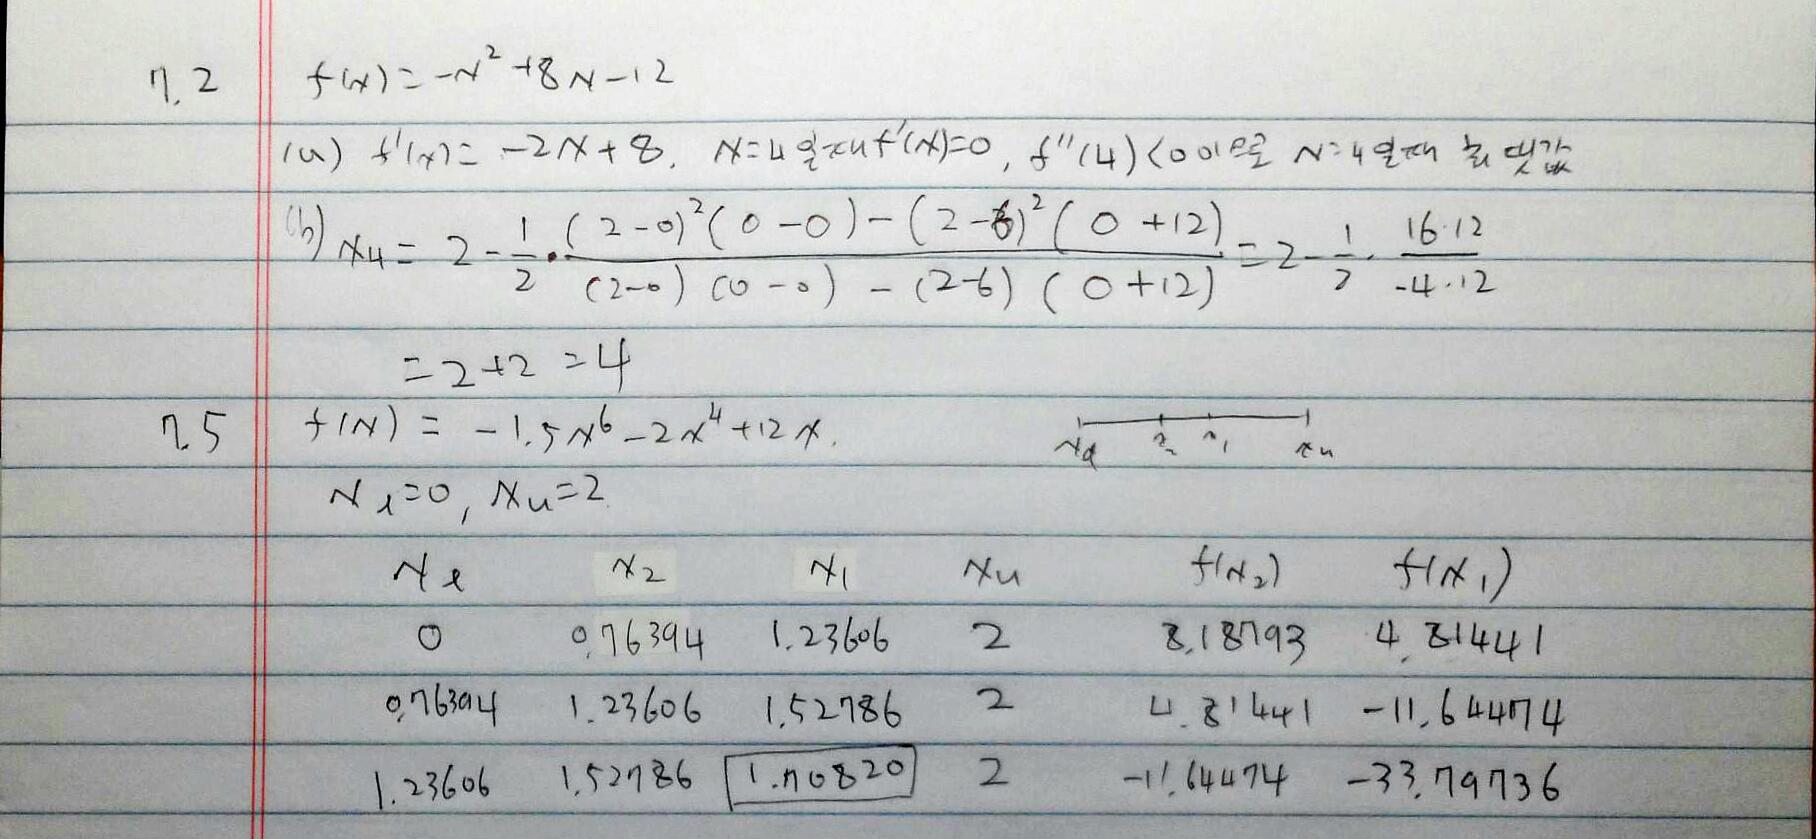 7.2 f(x) = -x² + 8x - 12
(a) f'(x) = -2x + 8. x=4일때 f'(x)=0, f''(4)<0이므로 x=4일때 최댓값
(b) x4 = 2 - 1/2 · ((2-0)²(0-0) - (2-6)²(0+12)) / ((2-0)(0-0) - (2-6)(0+12)) = 2 - 1/2 · (16·12)/(-4·12)
= 2+2 = 4
7.5 f(x) = -1.5x⁶ - 2x⁴ + 12x.
xl x2 x1 xu
xl=0, xu=2
xl x2 x1 xu f(x2) f(x1)
0 0.76394 1.23606 2 8.18793 4.81441
0.76394 1.23606 1.52786 2 4.81441 -11.64474
1.23606 1.52786 1.70820 2 -11.64474 -33.79736